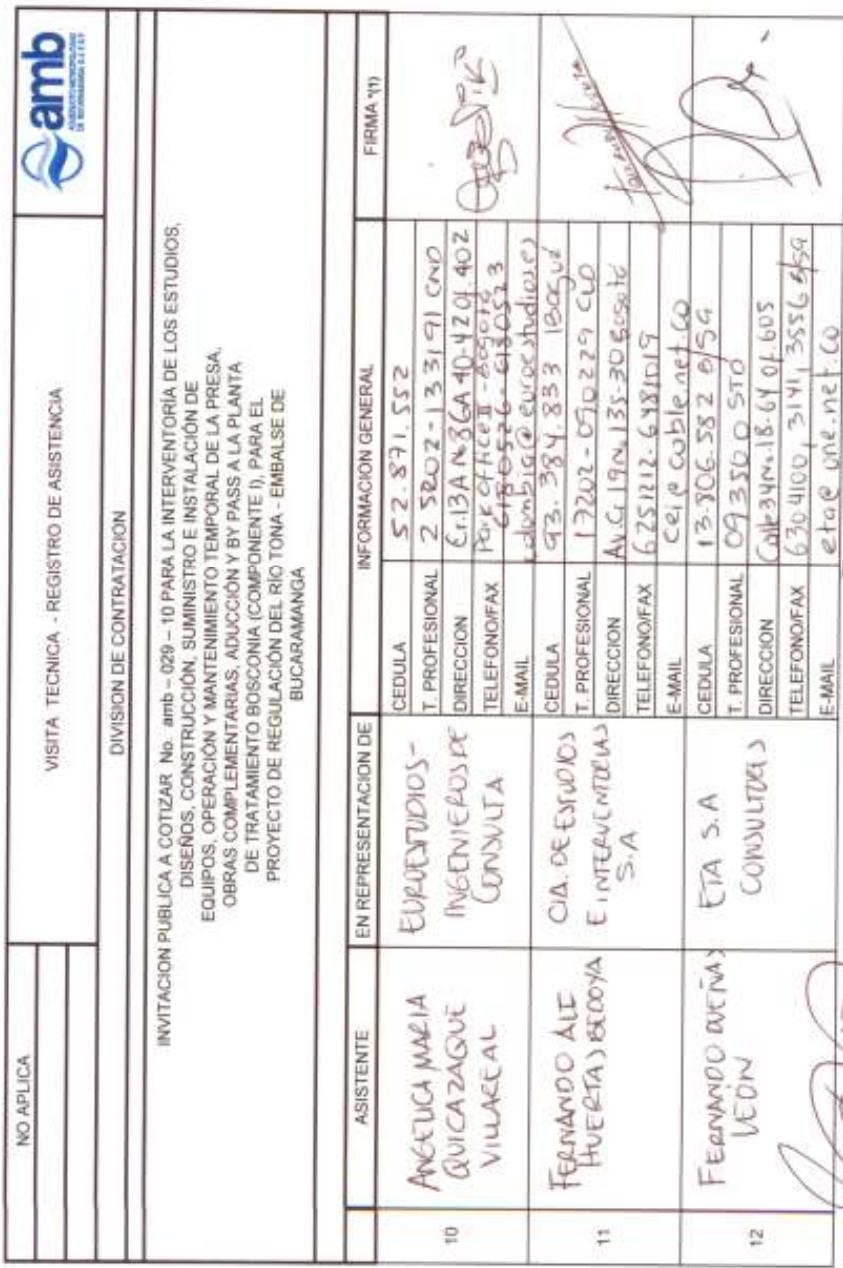 NO APLICA
VISITA TECNICA - REGISTRO DE ASISTENCIA
amb
ACUEDUCTO METROPOLITANO
DE BUCARAMANGA S.A E.S.P
DIVISION DE CONTRATACION
INVITACION PUBLICA A COTIZAR No. amb – 029 – 10 PARA LA INTERVENTORÍA DE LOS ESTUDIOS,
DISEÑOS, CONSTRUCCIÓN, SUMINISTRO E INSTALACIÓN DE
EQUIPOS, OPERACIÓN Y MANTENIMIENTO TEMPORAL DE LA PRESA,
OBRAS COMPLEMENTARIAS, ADUCCIÓN Y BY PASS A LA PLANTA
DE TRATAMIENTO BOSCONIA (COMPONENTE I), PARA EL
PROYECTO DE REGULACIÓN DEL RÍO TONA - EMBALSE DE
BUCARAMANGA
ASISTENTE EN REPRESENTACION DE INFORMACION GENERAL FIRMA *(1)
10
ANGELICA MARIA
QUICAZAQUE
VILLAREAL
EUROESTUDIOS-
INGENIEROS DE
CONSULTA
CEDULA 52.871.552
T. PROFESIONAL 25202-133191 CND
DIRECCION Cr.13A No 86A 40-42 Of. 402
TELEFONO/FAX Park Office II - Bogotá
6180526- 6180523
E-MAIL colombia@euroestudios.es
11
FERNANDO ALI
HUERTAS BEDOYA
CIA. DE ESTUDIOS
E INTERVENTORIAS
S.A
CEDULA 93.384.833 Ibagué
T. PROFESIONAL 17202-090229 CLD
DIRECCION Av. Cl 19 No. 135-30 Bogotá
TELEFONO/FAX 6251212-6481019
E-MAIL cei@cable.net.co
12
FERNANDO DUEÑAS
LEÓN
ETA S.A
CONSULTORES
CEDULA 13.806.582 B/GA
T. PROFESIONAL 09350 STD
DIRECCION Calle 34 No. 18-64 Of. 605
TELEFONO/FAX 6304100, 3141, 3556 B/GA
E-MAIL eta@une.net.co